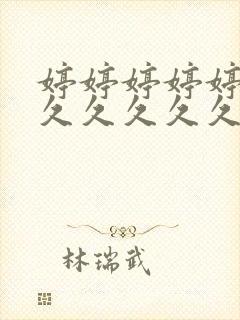 婷婷婷婷婷
久久久久久
林瑞武